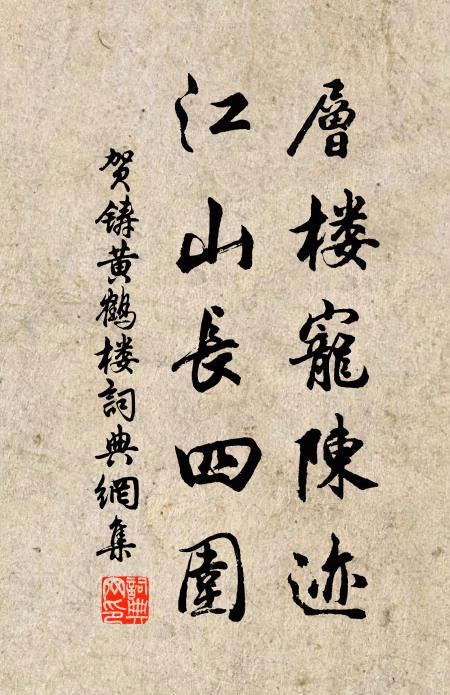 層楼寵陳迹
江山長四圍
贺鑄黄鶴楼詞典網集